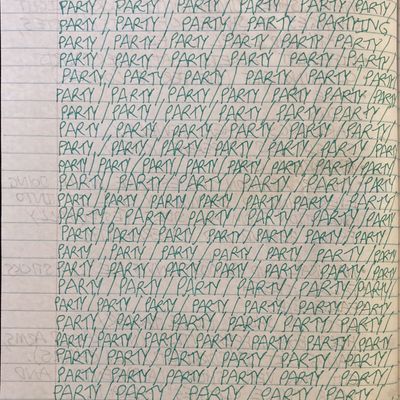 PARTY/ PARTY/ PARTY/ PARTY/ PARTY/ PARTY
PARTY/ PARTY/ PARTY/ PARTY/ PARTYING
PARTY/ PARTY/ PARTY/ PARTY/ PARTY/ PARTY
PARTY/ PARTY/ PARTY/ PARTY/ PARTY/ PARTY
PARTY/ PARTY/ PARTY/ PARTY/ PARTY/ PARTY
PARTY/ PARTY/ PARTY/ PARTY/ PARTY/ PARTY/ PARTY
PARTY/ PARTY/ PARTY/ PARTY/ PARTY/ PARTY
PARTY/ PARTY/ PARTY/ PARTY/ PARTY/ PARTY
PARTY/ PARTY/ PARTY/ PARTY/ PARTY/ PARTY
PARTY/ PARTY/ PARTY/ PARTY/ PARTY/ PARTY/ PARTY/ PARTY
PARTY/ PARTY/ PARTY/ PARTY/ PARTY/ PARTY
PARTY/ PARTY/ PARTY/ PARTY/ PARTY/ PARTY/ PARTY
PARTY/ PARTY/ PARTY/ PARTY/ PARTY/ PARTY
PARTY/ PARTY/ PARTY/ PARTY/ PARTY/ PARTY
PARTY/ PARTY/ PARTY/ PARTY/ PARTY/ PARTY
PARTY/ PARTY/ PARTY/ PARTY/ PARTY/ PARTY/ PARTY
PARTY/ PARTY/ PARTY/ PARTY/ PARTY/ PARTY
PARTY/ PARTY/ PARTY/ PARTY/ PARTY/ PARTY/ PARTY
PARTY/ PARTY/ PARTY/ PARTY/ PARTY/ PARTY
PARTY/ PARTY/ PARTY/ PARTY/ PARTY/ PARTY/ PARTY
PARTY/ PARTY/ PARTY/ PARTY/ PARTY/ PARTY
PARTY/ PARTY/ PARTY/ PARTY/ PARTY/ PARTY
PARTY/ PARTY/ PARTY/ PARTY/ PARTY/ PARTY